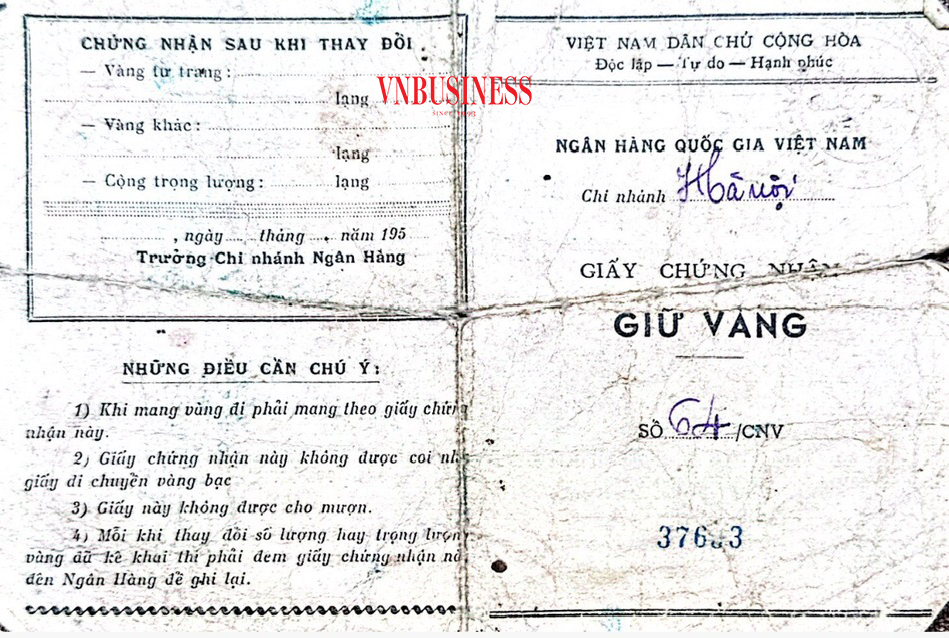 CHỨNG NHẬN SAU KHI THAY ĐỔI
— Vàng tư trang :
lạng
— Vàng khác :
lạng
— Cộng trọng lượng : lạng
, ngày tháng , năm 195
Trưởng Chi nhánh Ngân Hàng
NHỮNG ĐIỀU CẦN CHÚ Ý :
1) Khi mang vàng đi phải mang theo giấy chứng
nhận này.
2) Giấy chứng nhận này không được coi như
giấy di chuyển vàng bạc
3) Giấy này không được cho mượn.
4) Mỗi khi thay đổi số lượng hay trọng lượng
vàng đã kê khai thì phải đem giấy chứng nhận nà
đến Ngân Hàng để ghi lại.
VNBUSINESS
since 1993
VIỆT NAM DÂN CHỦ CỘNG HÒA
Độc lập — Tự do — Hạnh phúc
NGÂN HÀNG QUỐC GIA VIỆT NAM
Chi nhánh Hà nội
GIẤY CHỨNG NHẬN
GIỮ VÀNG
SỐ 64 /CNV